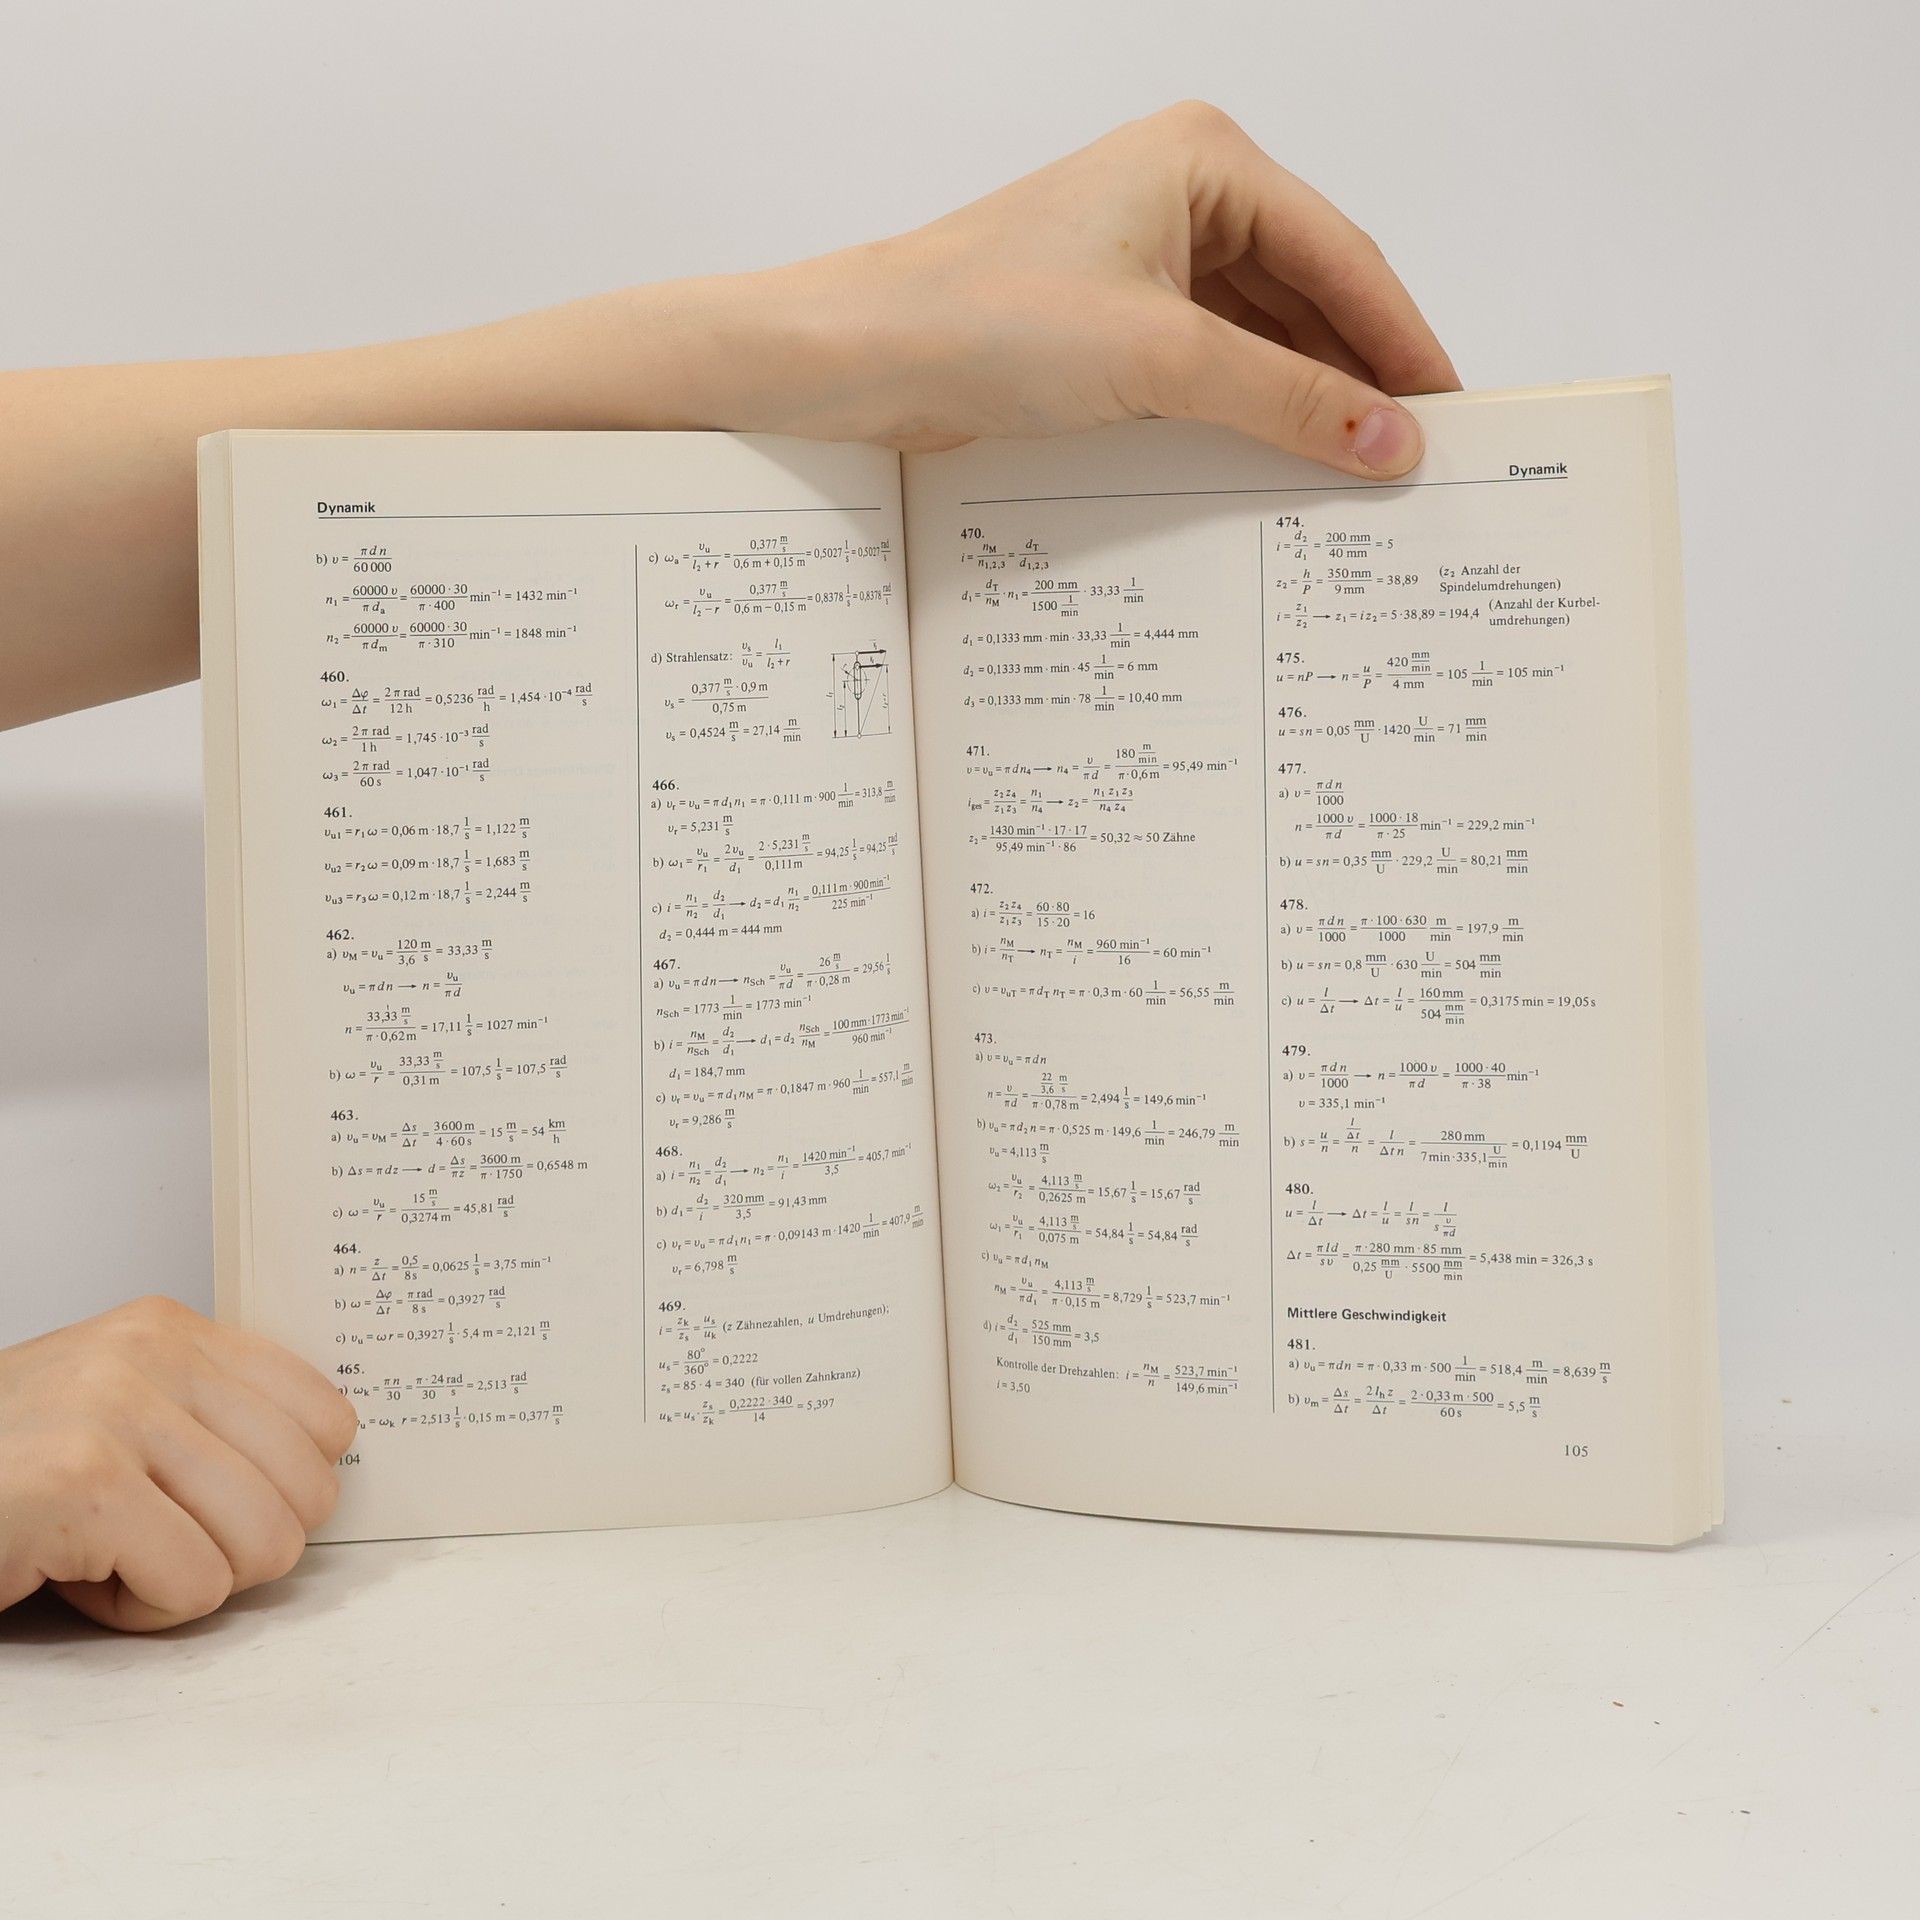 Dynamik
b) υ = πdn / 60 000
n₁ = 60000 υ / π dₐ = 60000 · 30 / π · 400 min⁻¹ = 1432 min⁻¹
n₂ = 60000 υ / π dₘ = 60000 · 30 / π · 310 min⁻¹ = 1848 min⁻¹
460.
ω₁ = Δφ / Δt = 2 π rad / 12 h = 0,5236 rad/h = 1,454 · 10⁻⁴ rad/s
ω₂ = 2 π rad / 1 h = 1,745 · 10⁻³ rad/s
ω₃ = 2 π rad / 60 s = 1,047 · 10⁻¹ rad/s
461.
υᵤ₁ = r₁ω = 0,06 m · 18,7 1/s = 1,122 m/s
υᵤ₂ = r₂ω = 0,09 m · 18,7 1/s = 1,683 m/s
υᵤ₃ = r₃ω = 0,12 m · 18,7 1/s = 2,244 m/s
462.
a) υ_M = υᵤ = 120/3,6 m/s = 33,33 m/s
υᵤ = πdn → n = υᵤ / πd
n = 33,33 m/s / π · 0,62 m = 17,11 1/s = 1027 min⁻¹
b) ω = υᵤ / r = 33,33 m/s / 0,31 m = 107,5 1/s = 107,5 rad/s
463.
a) υᵤ = υ_M = Δs / Δt = 3600 m / 4 · 60 s = 15 m/s = 54 km/h
b) Δs = πdz → d = Δs / πz = 3600 m / π · 1750 = 0,6548 m
c) ω = υᵤ / r = 15 m/s / 0,3274 m = 45,81 rad/s
464.
a) n = z / Δt = 0,5 / 8s = 0,0625 1/s = 3,75 min⁻¹
b) ω = Δφ / Δt = π rad / 8 s = 0,3927 rad/s
c) υᵤ = ωr = 0,3927 1/s · 5,4 m = 2,121 m/s
465.
a) ω_k = πn / 30 = π · 24 / 30 rad/s = 2,513 rad/s
υᵤ = ω_k r = 2,513 1/s · 0,15 m = 0,377 m/s
104
c) ωₐ = υᵤ / l₂ + r = 0,377 m/s / 0,6 m + 0,15 m = 0,5027 1/s = 0,5027 rad/s
ωᵣ = υᵤ / l₂ − r = 0,377 m/s / 0,6 m − 0,15 m = 0,8378 1/s = 0,8378 rad/s
d) Strahlensatz: υₛ / υᵤ = l₁ / l₂ + r
υₛ = 0,377 m/s · 0,9 m / 0,75 m
υₛ = 0,4524 m/s = 27,14 m/min
466.
a) υᵣ = υᵤ = πd₁n₁ = π · 0,111 m · 900 1/min = 313,8 m/min
υᵣ = 5,231 m/s
b) ω₁ = υᵤ / r₁ = 2υᵤ / d₁ = 2 · 5,231 m/s / 0,111m = 94,25 1/s = 94,25 rad/s
c) i = n₁ / n₂ = d₂ / d₁ → d₂ = d₁ n₁ / n₂ = 0,111 m · 900 min⁻¹ / 225 min⁻¹
d₂ = 0,444 m = 444 mm
467.
a) υᵤ = πdn → n_Sch = υᵤ / πd = 26 m/s / π · 0,28 m = 29,56 1/s
n_Sch = 1773 1/min = 1773 min⁻¹
b) i = n_M / n_Sch = d₂ / d₁ → d₁ = d₂ n_Sch / n_M = 100 mm · 1773 min⁻¹ / 960 min⁻¹
d₁ = 184,7 mm
c) υᵣ = υᵤ = πd₁n_M = π · 0,1847 m · 960 1/min = 557,1 m/min
υᵣ = 9,286 m/s
468.
a) i = n₁ / n₂ = d₂ / d₁ → n₂ = n₁ / i = 1420 min⁻¹ / 3,5 = 405,7 min⁻¹
b) d₁ = d₂ / i = 320 mm / 3,5 = 91,43 mm
c) υᵣ = υᵤ = πd₁n₁ = π · 0,09143 m · 1420 1/min = 407,9 m/min
υᵣ = 6,798 m/s
469.
i = z_k / zₛ = uₛ / u_k (z Zähnezahlen, u Umdrehungen);
uₛ = 80° / 360° = 0,2222
zₛ = 85 · 4 = 340 (für vollen Zahnkranz)
u_k = uₛ · zₛ / z_k = 0,2222 · 340 / 14 = 5,397
Dynamik
470.
i = n_M / n₁,₂,₃ = d_T / d₁,₂,₃
d₁ = d_T / n_M · n₁ = 200 mm / 1500 1/min · 33,33 1/min
d₁ = 0,1333 mm · min · 33,33 1/min = 4,444 mm
d₂ = 0,1333 mm · min · 45 1/min = 6 mm
d₃ = 0,1333 mm · min · 78 1/min = 10,40 mm
471.
υ = υᵤ = πdn₄ → n₄ = υ / πd = 180 m/min / π · 0,6 m = 95,49 min⁻¹
i_ges = z₂z₄ / z₁z₃ = n₁ / n₄ → z₂ = n₁ z₁ z₃ / n₄ z₄
z₂ = 1430 min⁻¹ · 17 · 17 / 95,49 min⁻¹ · 86 = 50,32 ≈ 50 Zähne
472.
a) i = z₂z₄ / z₁z₃ = 60 · 80 / 15 · 20 = 16
b) i = n_M / n_T → n_T = n_M / i = 960 min⁻¹ / 16 = 60 min⁻¹
c) υ = υᵤ_T = πd_T n_T = π · 0,3 m · 60 1/min = 56,55 m/min
473.
a) υ = υᵤ = πdn
n = υ / πd = 22/3,6 m/s / π · 0,78 m = 2,494 1/s = 149,6 min⁻¹
b) υᵤ = πd₂n = π · 0,525 m · 149,6 1/min = 246,79 m/min
υᵤ = 4,113 m/s
ω₂ = υᵤ / r₂ = 4,113 m/s / 0,2625 m = 15,67 1/s = 15,67 rad/s
ω₁ = υᵤ / r₁ = 4,113 m/s / 0,075 m = 54,84 1/s = 54,84 rad/s
c) υᵤ = πd₁n_M
n_M = υᵤ / πd₁ = 4,113 m/s / π · 0,15 m = 8,729 1/s = 523,7 min⁻¹
d) i = d₂ / d₁ = 525 mm / 150 mm = 3,5
Kontrolle der Drehzahlen: i = n_M / n = 523,7 min⁻¹ / 149,6 min⁻¹
i = 3,50
474.
i = d₂ / d₁ = 200 mm / 40 mm = 5
z₂ = h / P = 350 mm / 9 mm = 38,89 (z₂ Anzahl der
Spindelumdrehungen)
i = z₁ / z₂ → z₁ = iz₂ = 5 · 38,89 = 194,4 (Anzahl der Kurbel-
umdrehungen)
475.
u = nP → n = u / P = 420 mm/min / 4 mm = 105 1/min = 105 min⁻¹
476.
u = sn = 0,05 mm/U · 1420 U/min = 71 mm/min
477.
a) υ = πdn / 1000
n = 1000 υ / πd = 1000 · 18 / π · 25 min⁻¹ = 229,2 min⁻¹
b) u = sn = 0,35 mm/U · 229,2 U/min = 80,21 mm/min
478.
a) υ = πdn / 1000 = π · 100 · 630 / 1000 m/min = 197,9 m/min
b) u = sn = 0,8 mm/U · 630 U/min = 504 mm/min
c) u = l / Δt → Δt = l / u = 160 mm / 504 mm/min = 0,3175 min = 19,05 s
479.
a) υ = πdn / 1000 → n = 1000 υ / πd = 1000 · 40 / π · 38 min⁻¹
υ = 335,1 min⁻¹
b) s = u / n = l/Δt / n = l / Δt n = 280 mm / 7 min · 335,1 U/min = 0,1194 mm/U
480.
u = l / Δt → Δt = l / u = l / sn = l / s υ/πd
Δt = πld / sυ = π · 280 mm · 85 mm / 0,25 mm/U · 5500 mm/min = 5,438 min = 326,3 s
Mittlere Geschwindigkeit
481.
a) υᵤ = πdn = π · 0,33 m · 500 1/min = 518,4 m/min = 8,639 m/s
b) υₘ = Δs / Δt = 2 l_h z / Δt = 2 · 0,33 m · 500 / 60 s = 5,5 m/s
105